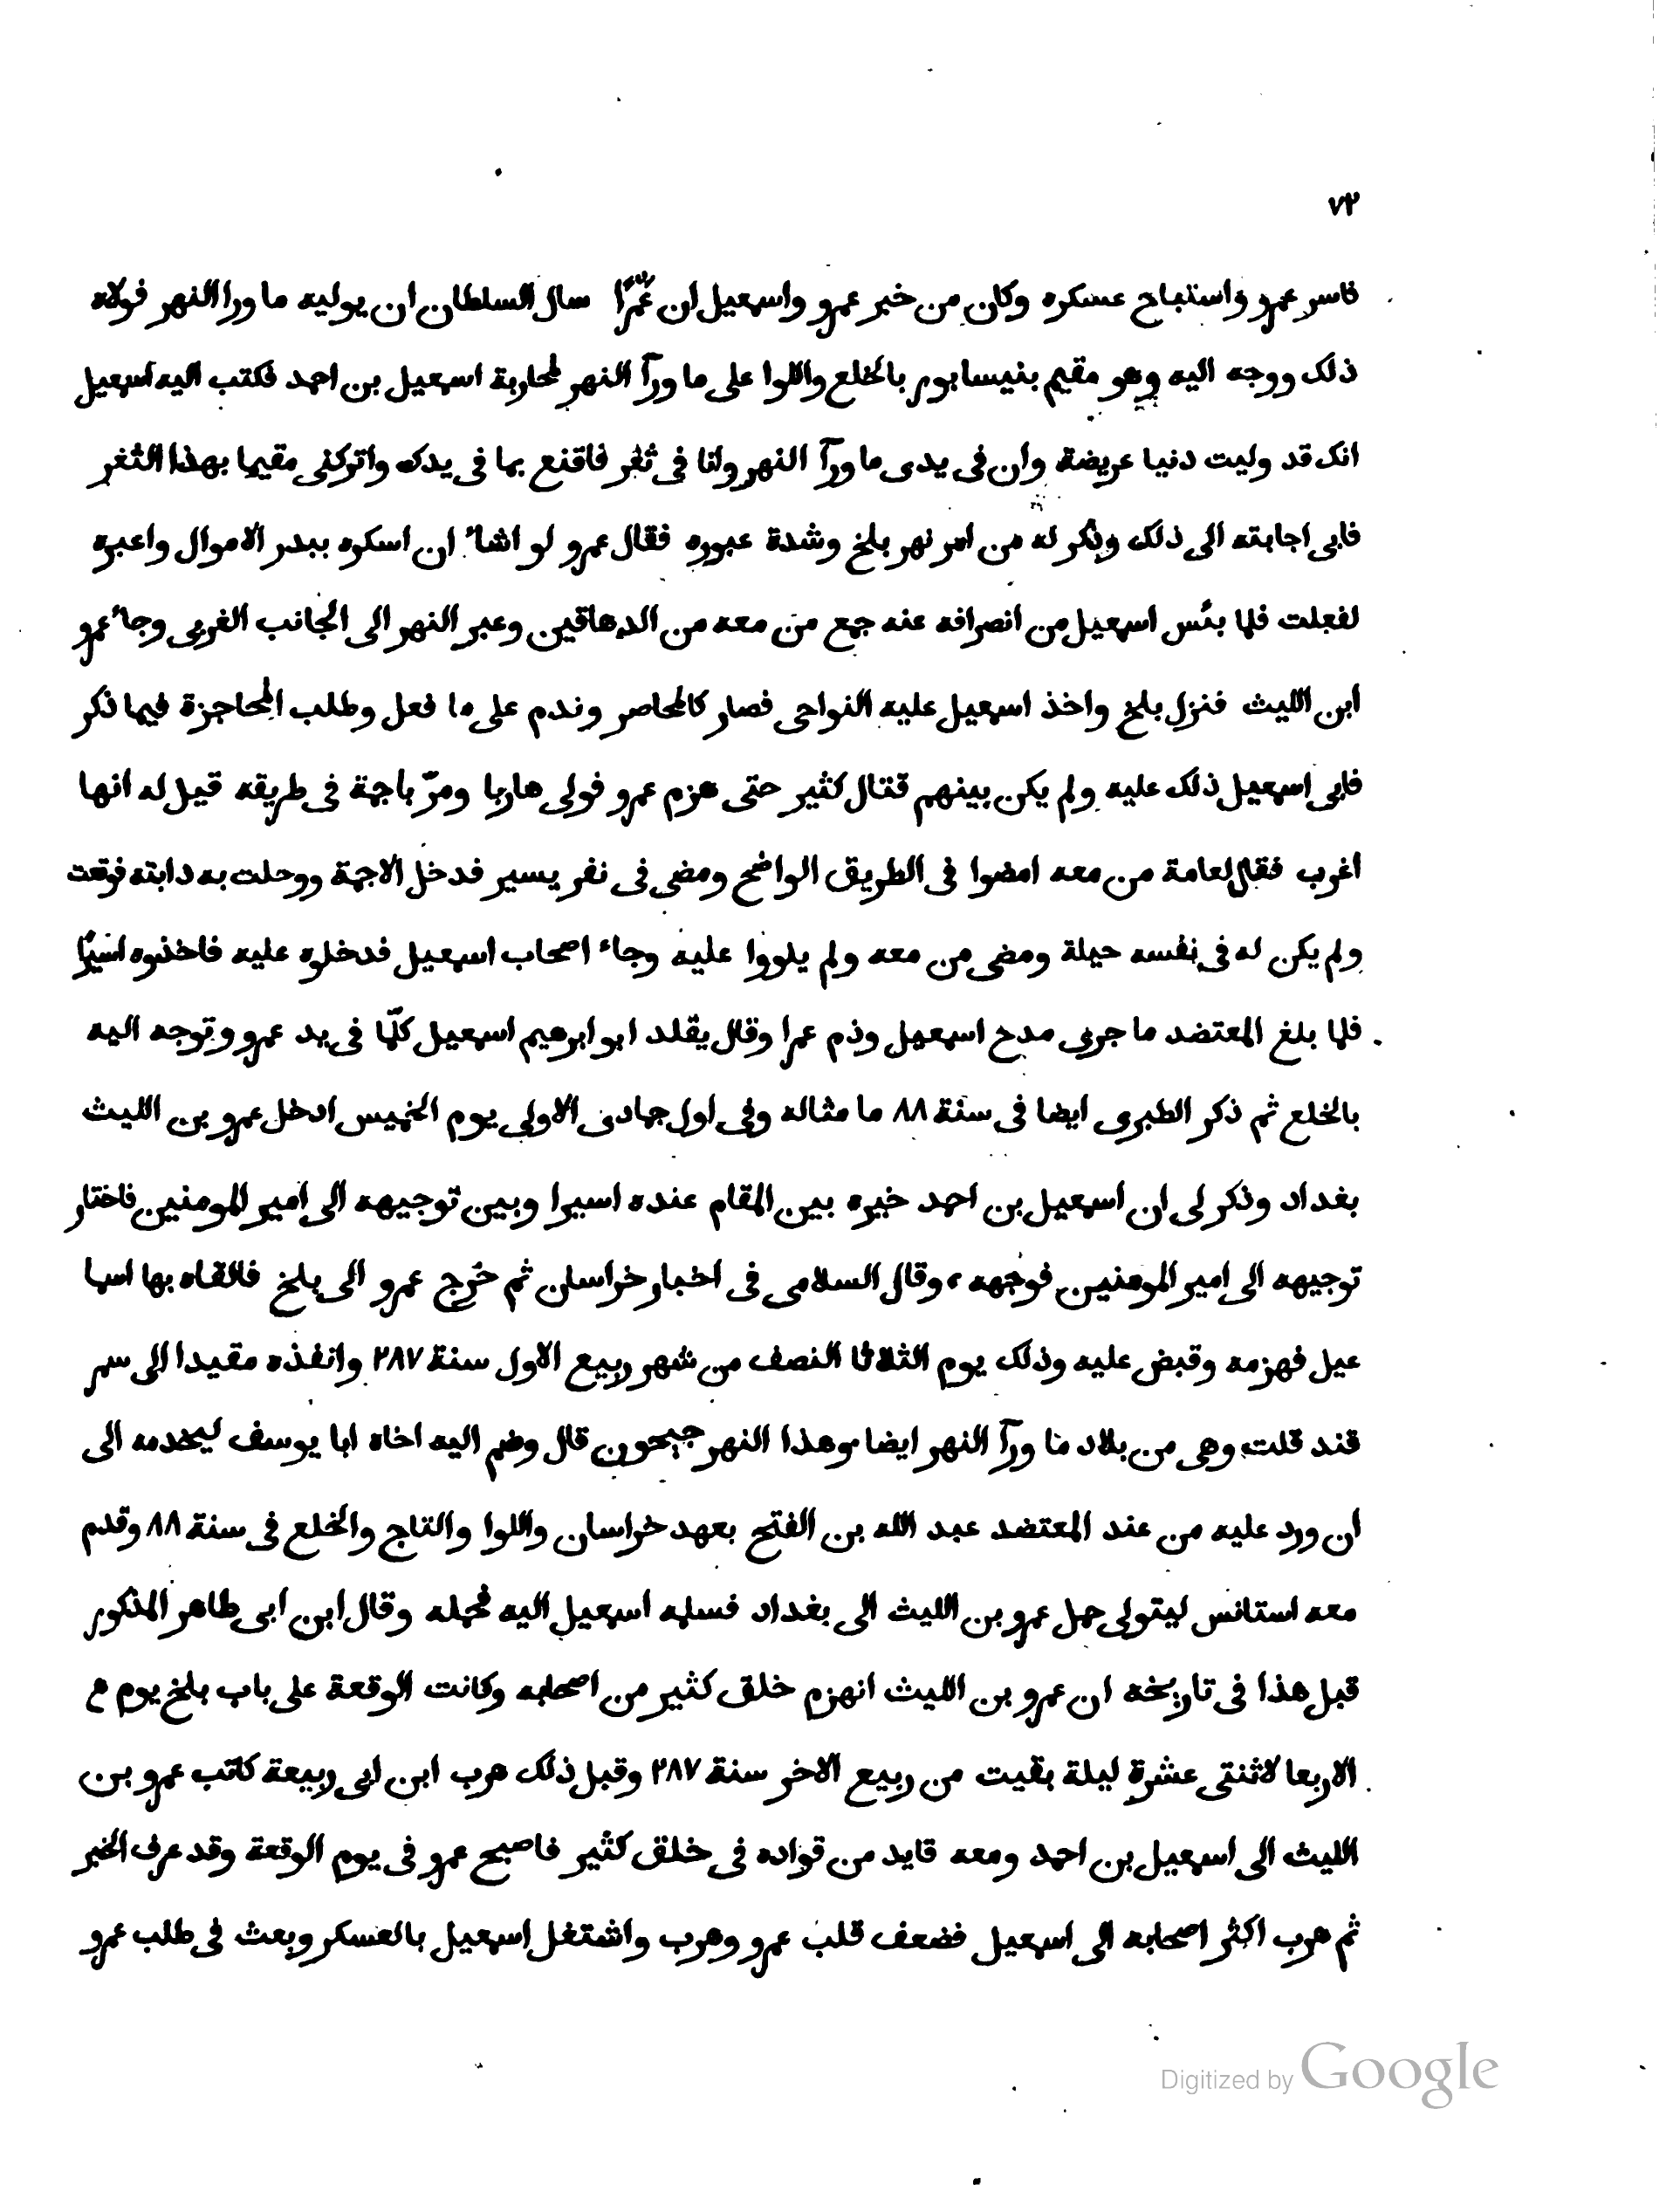 ٧٢
فاسر عمرو واستباح عسكره وكان من خبر عمرو واسمعيل ان عمرًا سال السلطان ان يوليه ما ورا النهر فولاه
ذلك ووجه اليه وهو مقيم بنيسابور بالخلع واللوا على ما ورآ النهر لمحاربة اسمعيل بن احمد فكتب اليه اسمعيل
انك قد وليت دنيا عريضة وان فى يدى ما ورآ النهر وانا فى ثغر فاقنع بما فى يدك واتركنى مقيما بهذا الثغر
فابى اجابته الى ذلك وذكر له من امر نهر بلخ وشدة عبوره فقال عمرو لو اشاء ان اسكره ببدر الاموال واعبره
لفعلت فلما يئس اسمعيل من انصرافه عنه جمع من معه من الدهاقين وعبر النهر الى الجانب الغربى وجاء عمرو
ابن الليث فنزل بلخ واخذ اسمعيل عليه النواحى فصار كالمحاصر وندم على ما فعل وطلب المحاجزة فيما ذكر
فابى اسمعيل ذلك عليه ولم يكن بينهم قتال كثير حتى هزم عمرو فولى هاربا ومرّ باجمة فى طريقه قيل له انها
اغرب فقال لعامة من معه امضوا فى الطريق الواضح ومضى فى نفر يسير فدخل الاجمة ووحلت به دابته فوقعت
ولم يكن له فى نفسه حيلة ومضى من معه ولم يلووا عليه وجاء اصحاب اسمعيل فدخلوه عليه فاخذوه اسيرًا
فلما بلغ المعتضد ما جرى مدح اسمعيل وذم عمرا وقال يقلد ابو ابرهيم اسمعيل كلّما فى يد عمرو وتوجه اليه
بالخلع ثم ذكر الطبرى ايضا فى سنة ٨٨ ما مثاله وفى اول جمادى الاولى يوم الخميس ادخل عمرو بن الليث
بغداد وذكر لى ان اسمعيل بن احمد خيره بين المقام عنده اسيرا وبين توجيهه الى امير المومنين فاختار
توجيهه الى امير المومنين فوجهه، وقال السلامى فى اخبار خراسان ثم خرج عمرو الى بلخ فالقاه بها اسما
عيل فهزمه وقبض عليه وذلك يوم الثلاثا النصف من شهر ربيع الاول سنة ٢٨٧ وانفذه مقيدا الى سمر
قند قلت وهى من بلاد ما ورآ النهر ايضا وهذا النهر جيحون قال وضم اليه اخاه ابا يوسف ليخدمه الى
ان ورد عليه من عند المعتضد عبد الله بن الفتح بعهد خراسان واللوا والتاج والخلع فى سنة ٨٨ وقدم
معه استانس ليتولى حمل عمرو بن الليث الى بغداد فسلمه اسمعيل اليه فحمله وقال ابن ابى طاهر المذكور
قبل هذا فى تاريخه ان عمرو بن الليث انهزم خلق كثير من اصحابه وكانت الوقعة على باب بلخ يوم
الاربعا لاثنتى عشرة ليلة بقيت من ربيع الاخر سنة ٢٨٧ وقبل ذلك هرب ابن ابى ربيعة كاتب عمرو بن
الليث الى اسمعيل بن احمد ومعه قايد من قواده فى خلق كثير فاصبح عمرو فى يوم الوقعة وقد عرف الخبر
ثم هرب اكثر اصحابه الى اسمعيل فضعف قلب عمرو وهرب واشتغل اسمعيل بالعسكر وبعث فى طلب عمرو
Digitized by Google